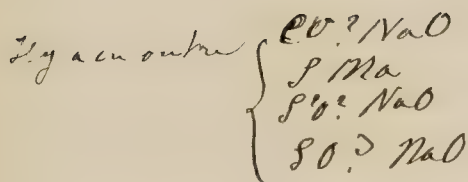 Il y a en outre { CO² NaO
S Na
S²O² NaO
SO³ NaO